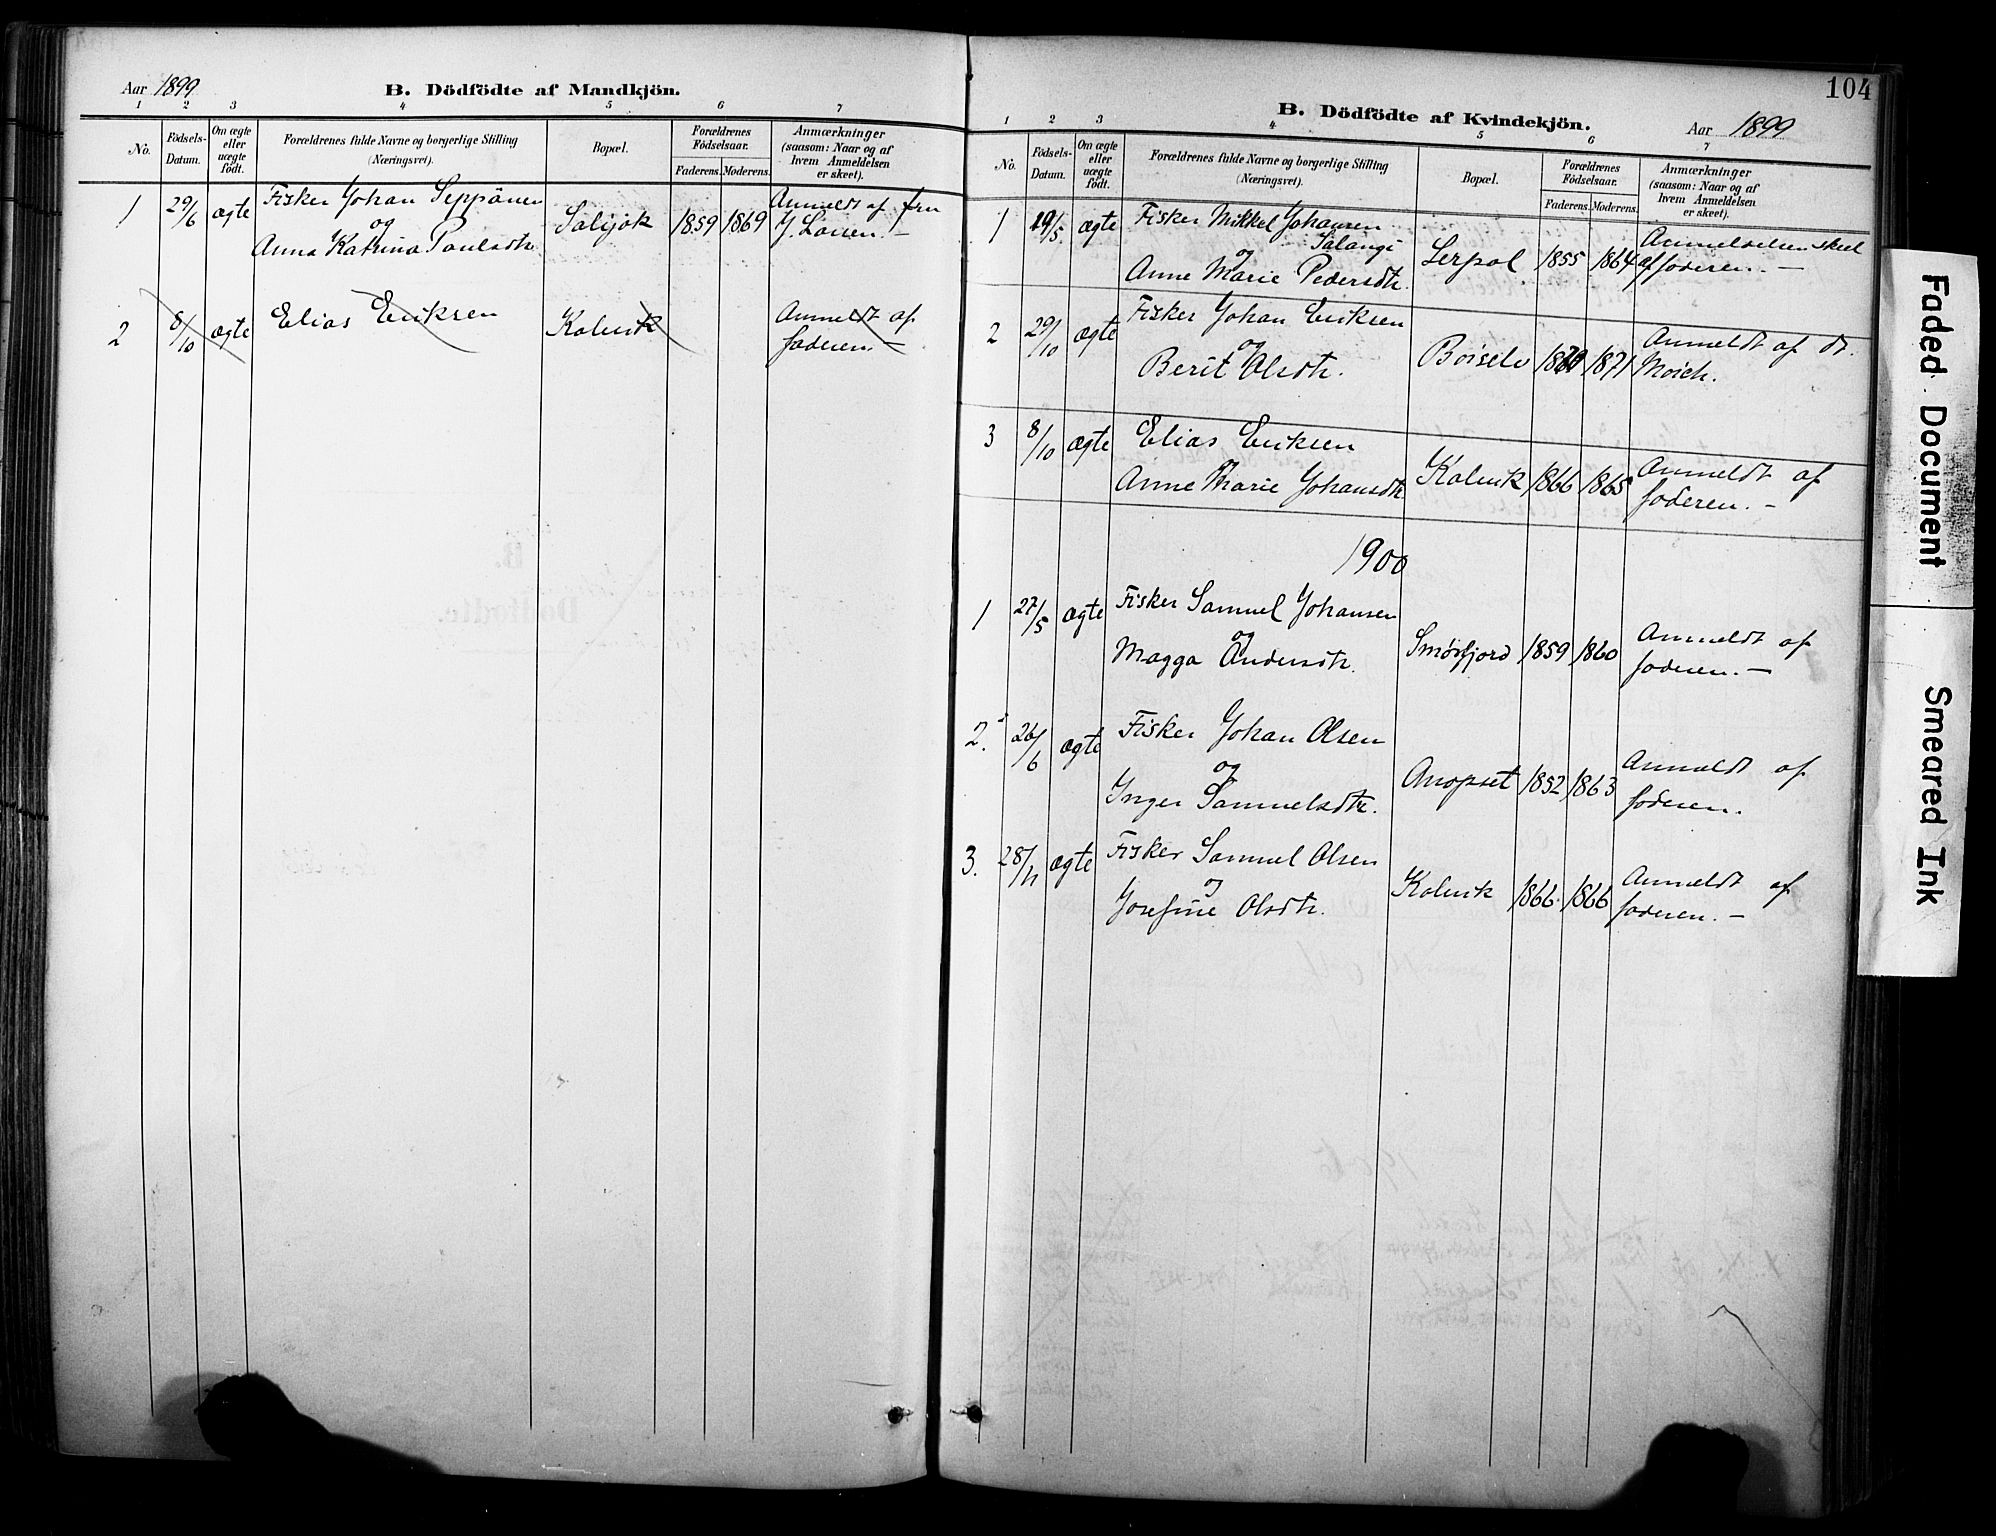 Aar 1899
B. Dödfödte af Mandkjön.
1 2 3 4 5 6 7
No.
Födsels-
Datum.
Om ægte
eller
uægte
födt.
Forældrenes fulde Navne og borgerlige Stilling
(Næringsvei).
Bopæl.
Forældrenes
Födselsaar.
Faderens. Moderens.
Anmærkninger
(saasom: Naar og af
hvem Anmeldelsen
er skeet).
1 29/6 ægte Fisker Johan Seppänen
og
Anna Katrina Paulsdtr.
1859 1869
Anmeldt af fru
J. Larsen. –
2 8/10 ægte Elias Eriksen
Kolvik
Anmeldt af
faderen. –
104
B. Dödfödte af Kvindekjön.
Aar 1899
1 2 3 4 5 6 7
No.
Födsels-
Datum.
Om ægte
eller
uægte
födt.
Forældrenes fulde Navne og borgerlige Stilling
(Næringsvei).
Bopæl.
Forældrenes
Födselsaar.
Faderens. Moderens.
Anmærkninger
(saasom: Naar og af
hvem Anmeldelsen
er skeet).
1 19/5 ægte Fisker Mikkel Johansen
Salangi
og
Anne Marie Pedersdtr.
Lerpol 1855 1864
Anmeldelsen skeet
af faderen. –
2 29/10 ægte Fisker Johan Eriksen
og
Berit Olsdtr.
Børselv 1871
Anmeldt af dr.
3 8/10 ægte Elias Eriksen
og
Anne Marie Johansdtr.
Kolvik 1866 1865
Anmeldt af
faderen. –
1900
1 27/5 ægte Fisker Samuel Johansen
og
Magga Andersdtr.
Smörfjord 1859 1860
Anmeldt af
faderen. –
2. 26/6 ægte Fisker Johan Olsen
og
Inger Samuelsdtr.
Anopset 1852 1863
Anmeldt af
faderen.
3. 28/11 ægte Fisker Samuel Olsen
og
Josefine Olsdtr.
Kolvik 1866 1866
Anmeldt af
faderen. –
Faded Document
Smeared Ink